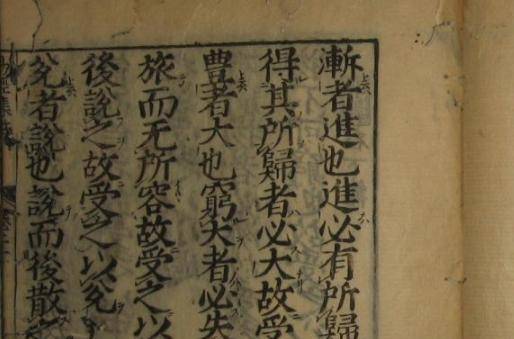 漸者進也進必有所歸
得其所歸者必大故受
豊者大也窮大者必失
旅而无所容故受之以
後說之故受之以兊
兊者說也說而後散之